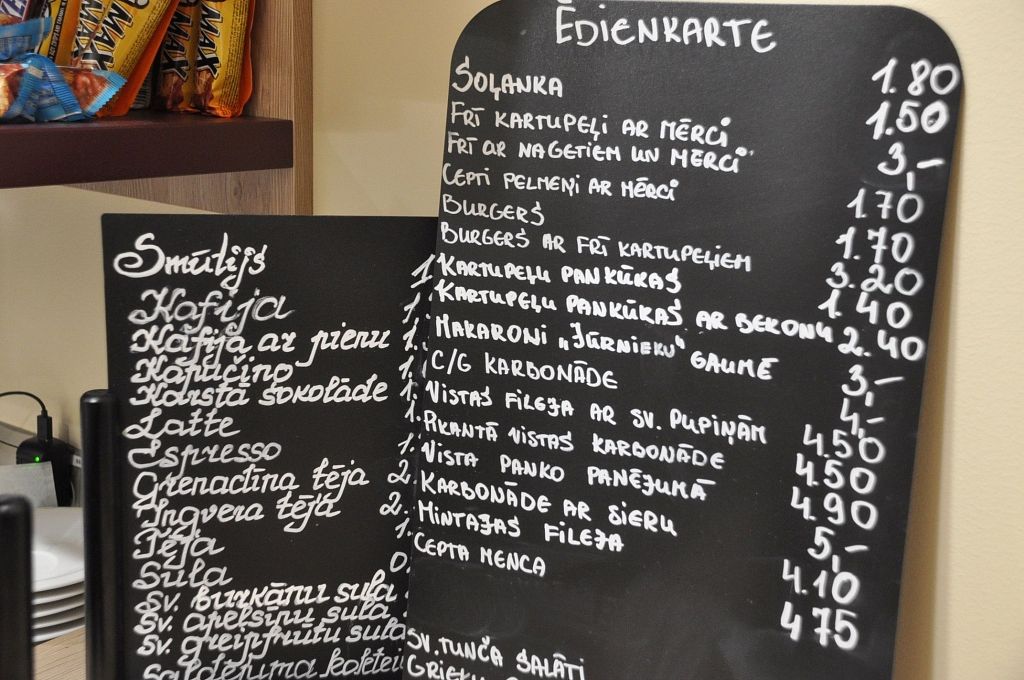 MAX
MAX
MAX
ĒDIENKARTE
SOĻANKA 1.80
FRĪ KARTUPEĻI AR MĒRCI 1.50
FRĪ AR NAGETIEM UN MĒRCI 3,-
CEPTI PELMEŅI AR MĒRCI 1.70
BURGERS 1.70
BURGERS AR FRĪ KARTUPEĻIEM 3.20
KARTUPEĻU PANKŪKAS 1.40
KARTUPEĻU PANKŪKAS AR BEKONU 2.40
MAKARONI „JŪRNIEKU" GAUMĒ 3,-
C/G KARBONĀDE 4,-
VISTAS FILEJA AR SV. PUPIŅĀM 4.50
PIKANTĀ VISTAS KARBONĀDE 4.50
VISTA PANKO PANĒJUMĀ 4.90
KARBONĀDE AR SIERU 5,-
MINTAJAS FILEJA 4.10
CEPTA MENCA 4.75
SV. TUNČA SALĀTI
Smūtijs 1.
Kafija 1.
Kafija ar pienu 1.
Kapučino 1.
Karstā šokolāde 1.
Latte 1.
Espresso 1.
Grenadīna tēja 2.
Ingvera tēja 2.
Tēja 1.
Sula 0.
Sv. burkānu sula
Sv. apelsīnu sula
Sv. greipfrūtu sula
Saldējuma